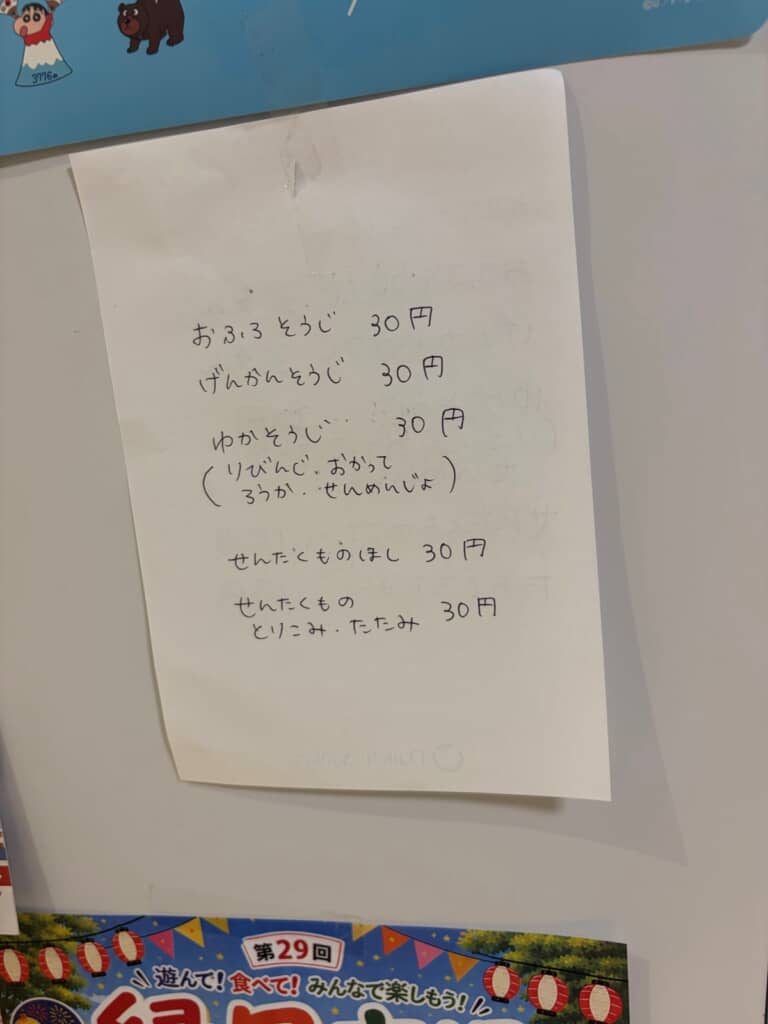 3776m
おふろそうじ 30円
げんかんそうじ 30円
ゆかそうじ 30円
(りびんぐ・おかって
ろうか・せんめんじょ)
せんたくものほし 30円
せんたくもの
とりこみ・たたみ 30円
第29回
遊んで!食べて!みんなで楽しもう!